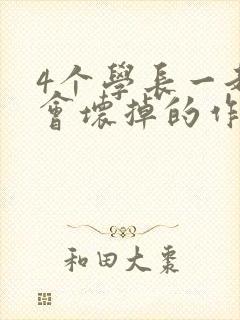 4个學長一
會壞掉的作
和田大棗